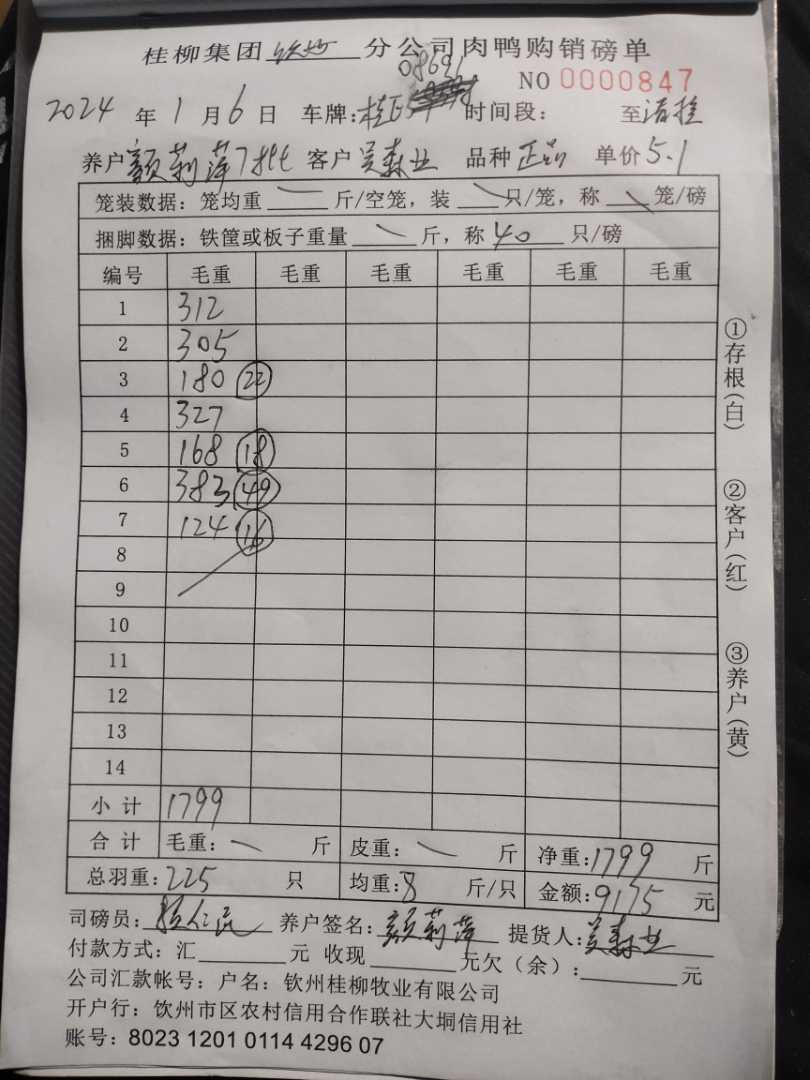 桂柳集团钦州分公司肉鸭购销磅单
08691
NO 0000847
2024 年 1 月 6 日 车牌:桂 时间段: 至
养户 颜莉萍 客户 吴森业 品种 正品 单价 5.1
笼装数据: 笼均重 斤/空笼, 装 只/笼, 称 笼/磅
捆脚数据: 铁筐或板子重量 斤, 称 40 只/磅
编号 毛重 毛重 毛重 毛重 毛重 毛重
1 312
2 305
3 180 22
4 327
5 168 18
6 383 49
7 124 16
8
9
10
11
12
13
14
小计 1799
合计 毛重: 斤 皮重: 斤 净重: 1799 斤
总羽重: 225 只 均重: 8 斤/只 金额: 9175 元
司磅员: 养户签名: 颜莉萍 提货人: 吴森业
付款方式: 汇 元 收现 元欠(余): 元
公司汇款帐号: 户名: 钦州桂柳牧业有限公司
开户行: 钦州市区农村信用合作联社大垌信用社
账号: 8023 1201 0114 4296 07
①存根(白)
②客户(红)
③养户(黄)